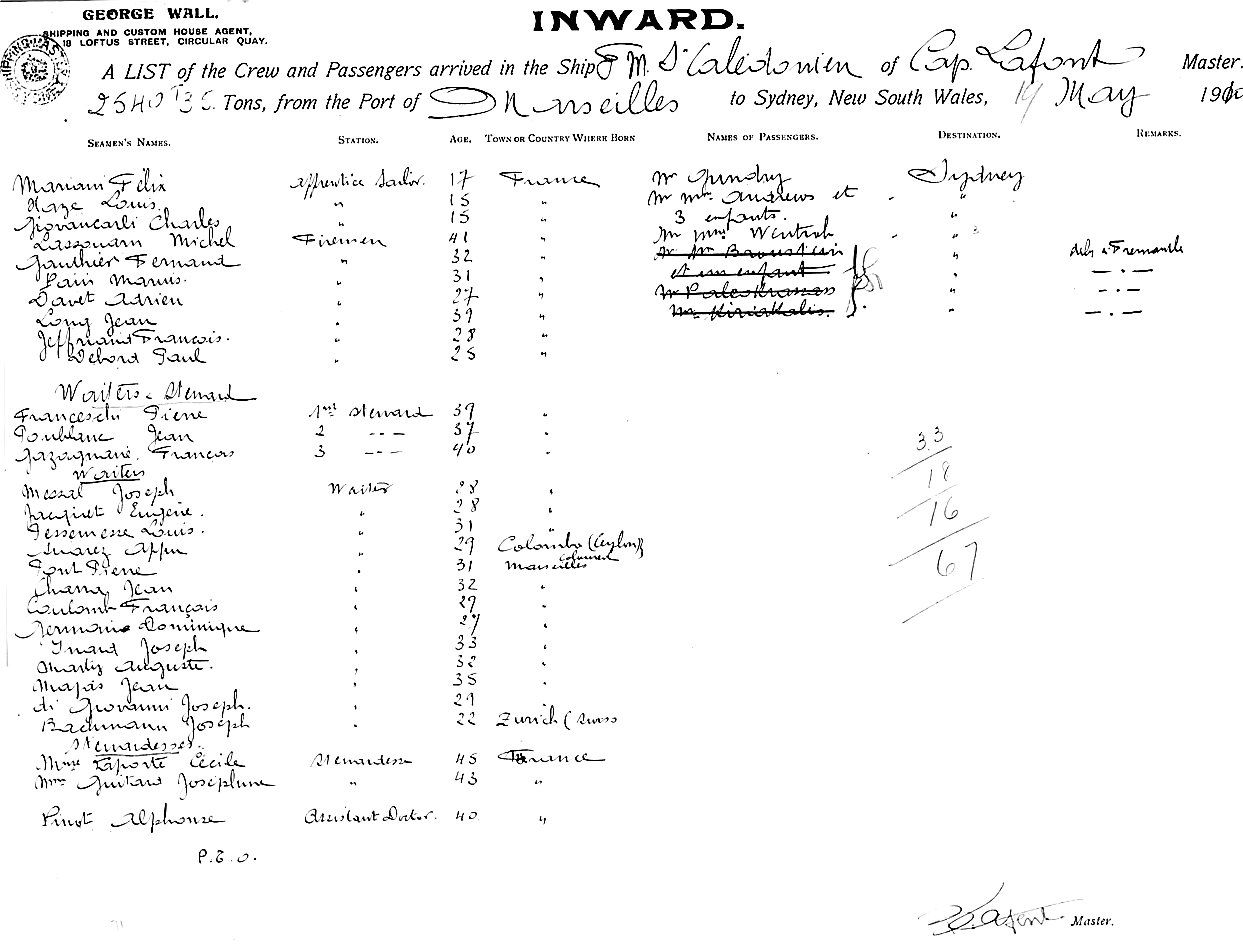 GEORGE WALL.
SHIPPING AND CUSTOM HOUSE AGENT,
18 LOFTUS STREET, CIRCULAR QUAY.
INWARD.
A LIST of the Crew and Passengers arrived in the Ship F. M. Sr Caledonien of Cap. Lafont Master.
2540 Tons, from the Port of Marseilles to Sydney, New South Wales, 19 May 191
SEAMEN'S NAMES. STATION. AGE. TOWN OR COUNTRY WHERE BORN NAMES OF PASSENGERS. DESTINATION. REMARKS.
Mariani Félix Apprentice Sailor. 17 France Mr Gundry Sydney
Haze Louis " 15 " Mr Mme Andrews et "
Giovancarli Charles " 15 " 3 enfants. "
Lassouarn Michel Firemen 41 " Mr Mme "
Gauthier Fernand " 32 " " deb à Fremantle
Pain Marius. " 31 " et un enfant " — . —
Davet Adrien " 27 " " — . —
Long Jean " 39 " Mr Kiriakalis. " — . —
François. " 28 "
Debord Paul " 25 "
Waiters - Steward
Franceschi Pierre 1er Steward 39 "
Poublanc Jean 2 -- - 37 "
François 3 -- - 40 "
Waiters
Joseph Waiter 28 "
Jacquet Eugène. " 28 "
Louis. " 31 "
Suarez Appu " 29 Colombo (Ceylon)
coloured
Pont Pierre " 31 Marseilles
Jean " 32 "
Coulomb François " 29 "
Germain Dominique " 27 "
Inard Joseph " 33 "
Auguste. " 32 "
Jean " 35 "
di Giovanni Joseph. " 29 "
Bachmann Joseph " 22 Zurich (Swiss
Stewardesses.
Mme Laporte Cécile Stewardesse 45 France
Mme Guitard Joséphine " 43 "
Pinot Alphonse Assistant Doctor. 40 "
P.T.O.
33
18
16
67
Lafont Master.